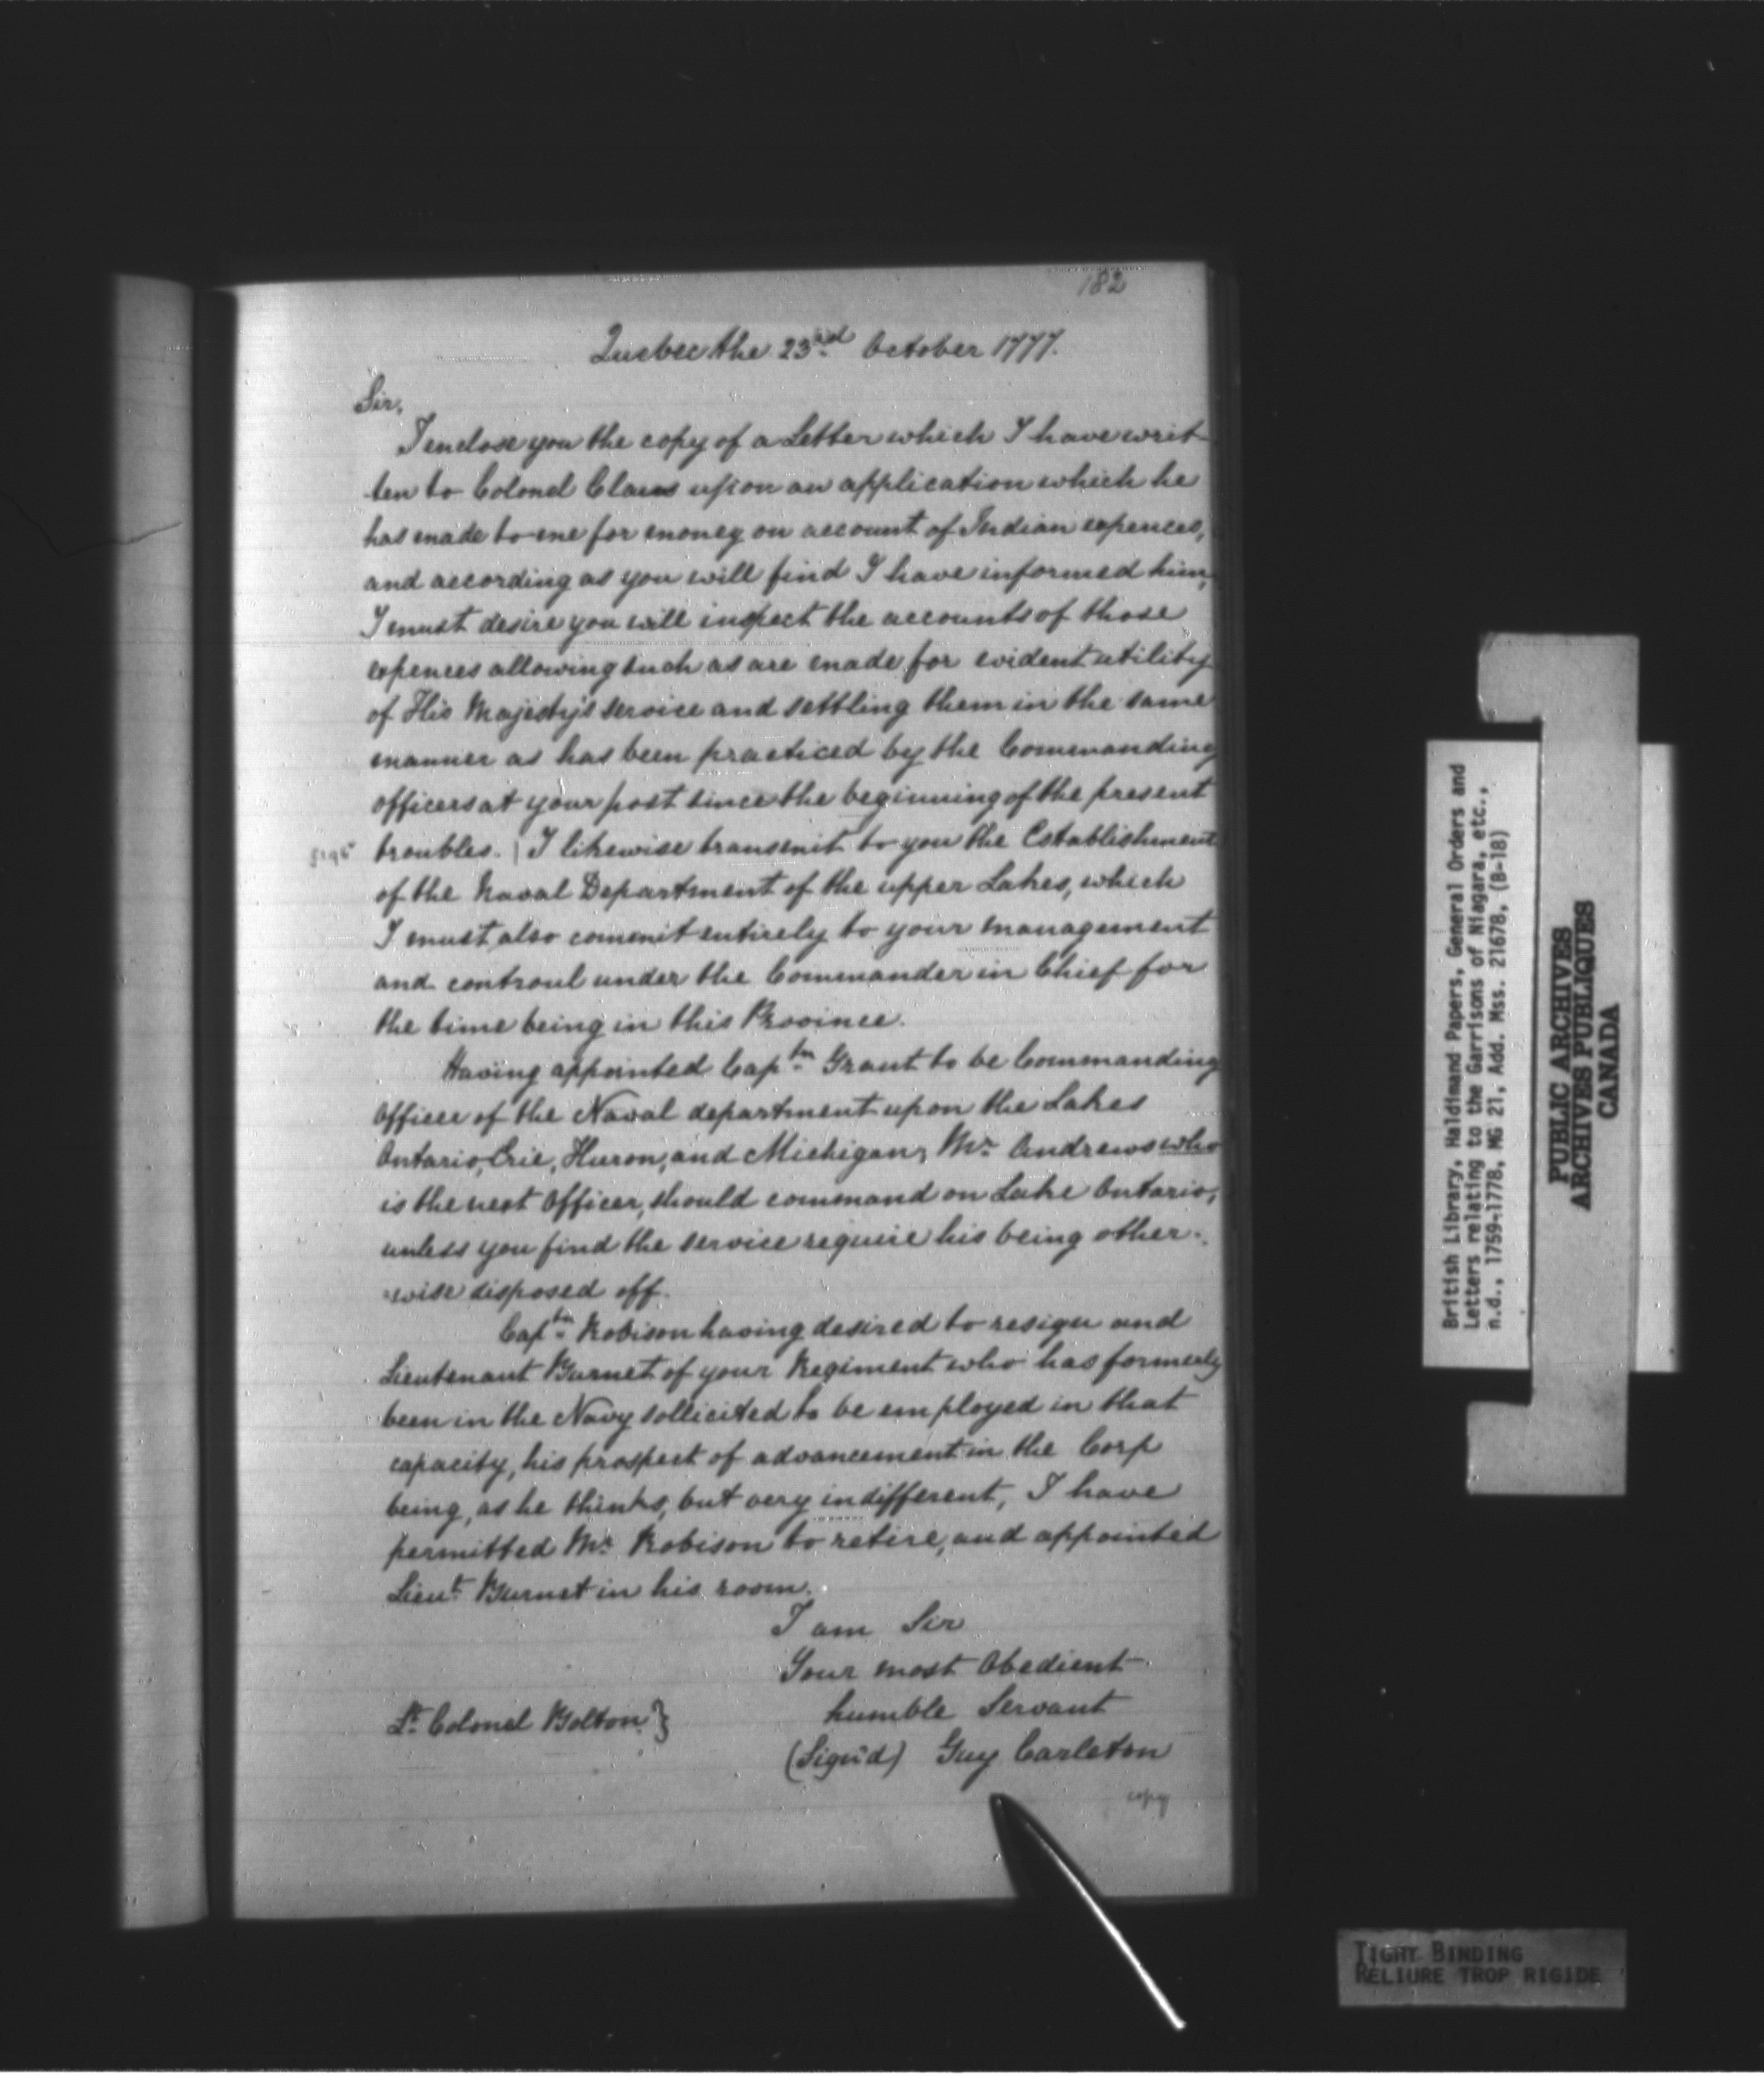 182
Quebec the 23rd October 1777.
Sir,
I enclose you the copy of a Letter which I have writ-
-ten to Colonel Claus upon an application which he
has made to me for money on account of Indian expences,
and according as you will find I have informed him,
I must desire you will inspect the accounts of those
expences allowing such as are made for evident utility
of His Majesty's service and settling them in the same
manner as has been practiced by the Commanding
officers at your post since the beginning of the present
troubles. | I likewise transmit to you the Establishment
of the Naval Department of the upper Lakes, which
I must also commit entirely to your management
and controul under the Commander in Chief for
the time being in this Province.
Having appointed Captn Grant to be Commanding
Officer of the Naval department upon the Lakes
Ontario, Erie, Huron, and Michigan, Mr Andrews who
is the next Officer, should command on Lake Ontario,
unless you find the service require his being other-
-wise disposed off.
Captn Robison having desired to resign and
Lieutenant Burnet of your Regiment who has formerly
been in the Navy sollicited to be employed in that
capacity, his prospect of advancement in the Corp
being, as he thinks, but very indifferent, I have
permitted Mr Robison to retire, and appointed
Lieut Burnet in his room.
I am Sir
Your most Obedient
humble Servant
Lt Colonel Bolton }
(Sign'd) Guy Carleton
copy
British Library, Haldimand Papers, General Orders and
Letters relating to the Garrisons of Niagara, etc.,
n.d., 1759-1778, MG 21, Add. Mss. 21678, (B-18)
PUBLIC ARCHIVES
ARCHIVES PUBLIQUES
CANADA
TIGHT BINDING
RELIURE TROP RIGIDE